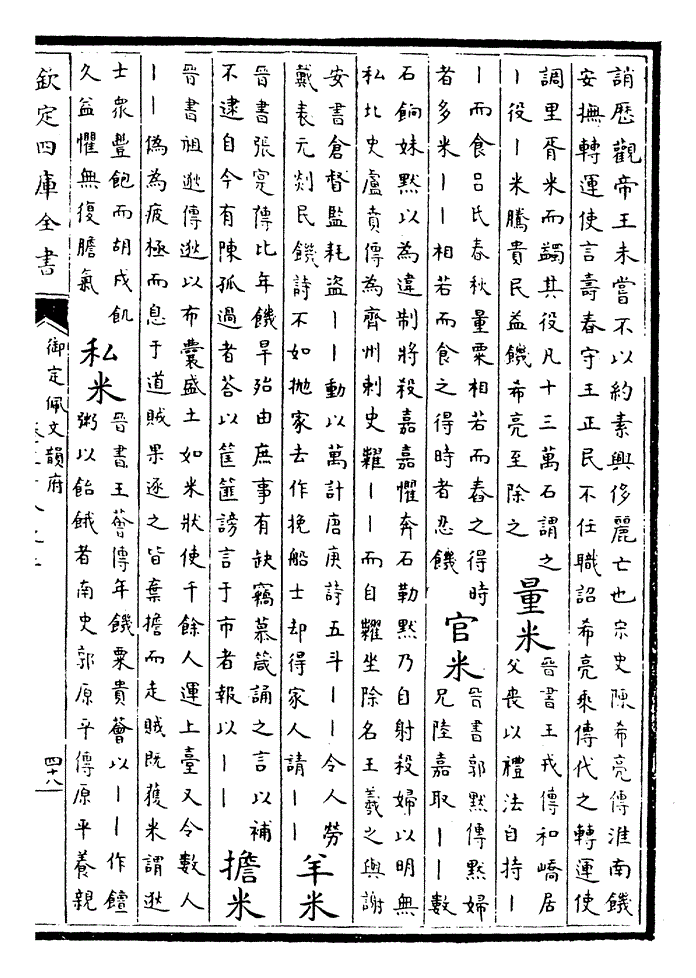 誚歴觀帝王未嘗不以約素興侈麗亡也宋史陳希亮傳淮南饑
安撫轉運使言壽春守王正民不任職詔希亮乘傳代之轉運使
調里胥米而蠲其役凡十三萬石謂之
丨役丨米騰貴民益饑希亮至除之
量米
晉書王戎傳和嶠居
父喪以禮法自持丨
丨而食吕氏春秋量粟相若而舂之得時
者多米丨丨相若而食之得時者忍饑
官米
晉書郭黙傳黙婦
兄陸嘉取丨丨數
石餉妹黙以為違制將殺嘉嘉懼奔石勒黙乃自射殺婦以明無
私北史盧賁傳為齊州刺史糶丨丨而自糶坐除名王羲之與謝
安書倉督監耗盜丨丨動以萬計唐庚詩五斗丨丨令人勞
戴表元剡民饑詩不如抛家去作挽船士却得家人請丨丨
羊米
晉書張寔傳比年饑旱殆由庶事有缺竊慕箴誦之言以補
不逮自今有陳孤過者荅以筐篚謗言于市者報以丨丨
擔米
晉書祖逖傳逖以布囊盛土如米狀使千餘人運上臺又令數人
丨丨偽為疲極而息于道賊果逐之皆棄擔而走賊既獲米謂逖
士衆豐飽而胡戍飢
久益懼無復膽氣
私米
晉書王薈傳年饑粟貴薈以丨丨作饘
粥以飴餓者南史郭原平傳原平養親
欽定四庫全書
御定佩文韻府
四十八